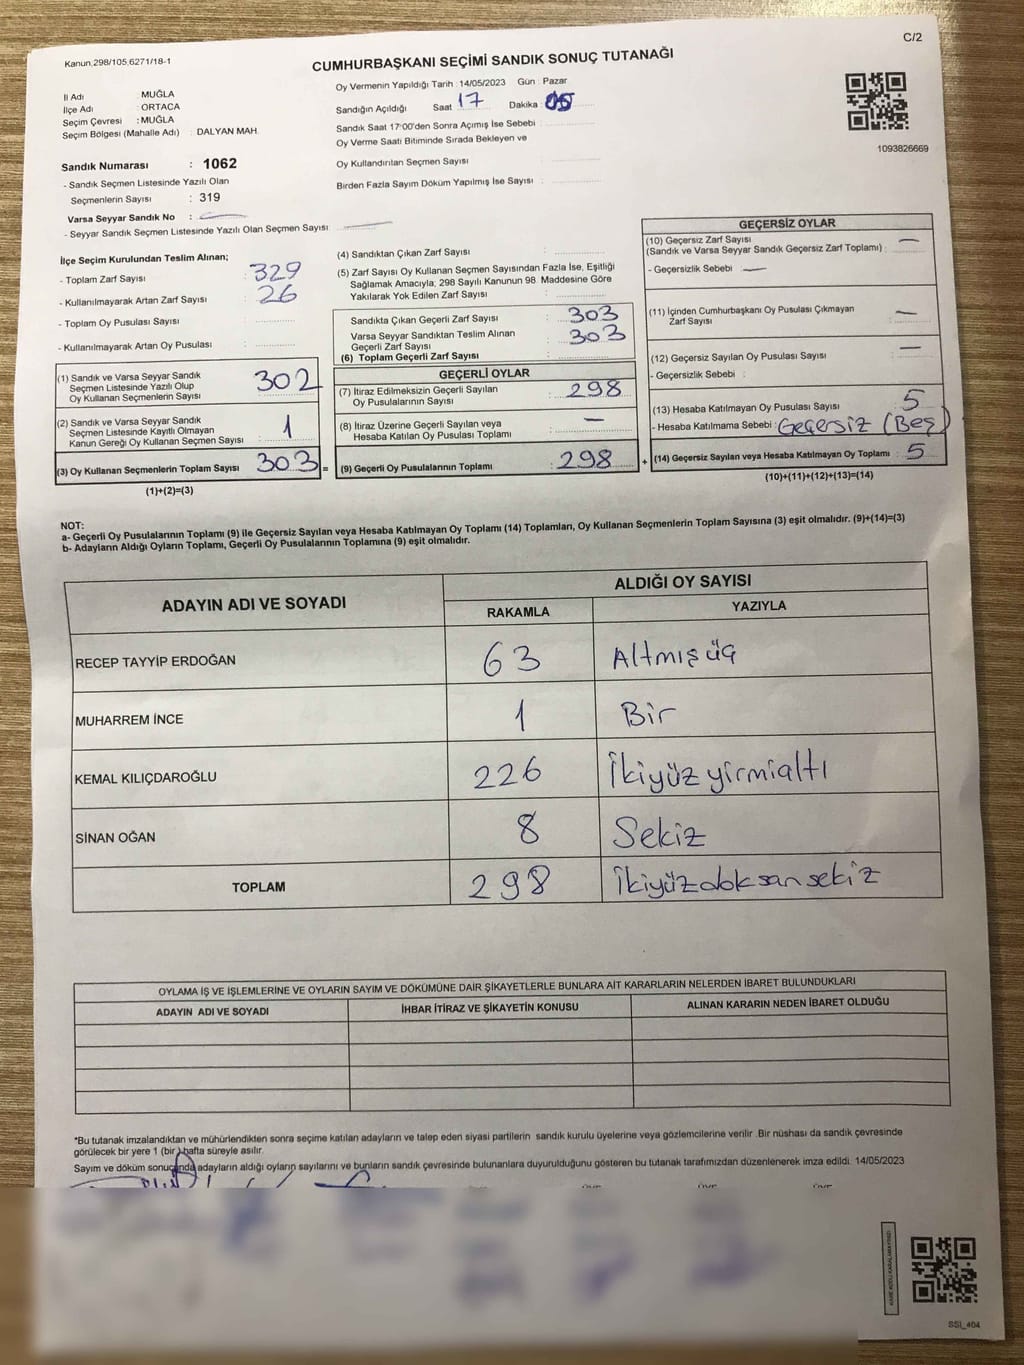 C/2
Kanun,298/105,6271/18-1
CUMHURBAŞKANI SEÇİMİ SANDIK SONUÇ TUTANAĞI
İl Adı : MUĞLA
İlçe Adı : ORTACA
Seçim Çevresi : MUĞLA
Seçim Bölgesi (Mahalle Adı) : DALYAN MAH.
Oy Vermenin Yapıldığı Tarih : 14/05/2023 Gün : Pazar
Sandığın Açıldığı Saat 17 Dakika : 05
Sandık Saat 17:00'den Sonra Açımış İse Sebebi :
Oy Verme Saati Bitiminde Sırada Bekleyen ve
Oy Kullandırılan Seçmen Sayısı :
Birden Fazla Sayım Döküm Yapılmış İse Sayısı :
1093826669
Sandık Numarası : 1062
- Sandık Seçmen Listesinde Yazılı Olan
Seçmenlerin Sayısı : 319
Varsa Seyyar Sandık No :
- Seyyar Sandık Seçmen Listesinde Yazılı Olan Seçmen Sayısı :
İlçe Seçim Kurulundan Teslim Alınan;
- Toplam Zarf Sayısı : 329
- Kullanılmayarak Artan Zarf Sayısı : 26
- Toplam Oy Pusulası Sayısı :
- Kullanılmayarak Artan Oy Pusulası :
(1) Sandık ve Varsa Seyyar Sandık
Seçmen Listesinde Yazılı Olup
Oy Kullanan Seçmenlerin Sayısı 302
(2) Sandık ve Varsa Seyyar Sandık
Seçmen Listesinde Kayıtlı Olmayan
Kanun Gereği Oy Kullanan Seçmen Sayısı : 1
(3) Oy Kullanan Seçmenlerin Toplam Sayısı : 303 =
(1)+(2)=(3)
(4) Sandıktan Çıkan Zarf Sayısı :
(5) Zarf Sayısı Oy Kullanan Seçmen Sayısından Fazla İse, Eşitliği
Sağlamak Amacıyla; 298 Sayılı Kanunun 98. Maddesine Göre
Yakılarak Yok Edilen Zarf Sayısı :
Sandıkta Çıkan Geçerli Zarf Sayısı : 303
Varsa Seyyar Sandıktan Teslim Alınan
Geçerli Zarf Sayısı : 303
(6) Toplam Geçerli Zarf Sayısı :
GEÇERLİ OYLAR
(7) İtiraz Edilmeksizin Geçerli Sayılan
Oy Pusulalarının Sayısı : 298
(8) İtiraz Üzerine Geçerli Sayılan veya
Hesaba Katılan Oy Pusulası Toplamı : —
(9) Geçerli Oy Pusulalarının Toplamı : 298 +
GEÇERSİZ OYLAR
(10) Geçersiz Zarf Sayısı
(Sandık ve Varsa Seyyar Sandık Geçersiz Zarf Toplamı) : —
- Geçersizlik Sebebi : —
(11) İçinden Cumhurbaşkanı Oy Pusulası Çıkmayan
Zarf Sayısı : —
(12) Geçersiz Sayılan Oy Pusulası Sayısı : —
- Geçersizlik Sebebi :
(13) Hesaba Katılmayan Oy Pusulası Sayısı : 5
- Hesaba Katılmama Sebebi : Geçersiz (Beş)
(14) Geçersiz Sayılan veya Hesaba Katılmayan Oy Toplamı : 5
(10)+(11)+(12)+(13)=(14)
NOT:
a- Geçerli Oy Pusulalarının Toplamı (9) ile Geçersiz Sayılan veya Hesaba Katılmayan Oy Toplamı (14) Toplamları, Oy Kullanan Seçmenlerin Toplam Sayısına (3) eşit olmalıdır. (9)+(14)=(3)
b- Adayların Aldığı Oyların Toplamı, Geçerli Oy Pusulalarının Toplamına (9) eşit olmalıdır.
ADAYIN ADI VE SOYADI
ALDIĞI OY SAYISI
RAKAMLA YAZIYLA
RECEP TAYYİP ERDOĞAN 63 Altmışüç
MUHARREM İNCE 1 Bir
KEMAL KILIÇDAROĞLU 226 İkiyüz yirmialtı
SİNAN OĞAN 8 Sekiz
TOPLAM 298 İkiyüzdoksansekiz
OYLAMA İŞ VE İŞLEMLERİNE VE OYLARIN SAYIM VE DÖKÜMÜNE DAİR ŞİKAYETLERLE BUNLARA AİT KARARLARIN NELERDEN İBARET BULUNDUKLARI
ADAYIN ADI VE SOYADI İHBAR İTİRAZ VE ŞİKAYETİN KONUSU ALINAN KARARIN NEDEN İBARET OLDUĞU
*Bu tutanak imzalandıktan ve mühürlendikten sonra seçime katılan adayların ve talep eden siyasi partilerin sandık kurulu üyelerine veya gözlemcilerine verilir .Bir nüshası da sandık çevresinde
görülecek bir yere 1 (bir) hafta süreyle asılır.
Sayım ve döküm sonucunda adayların aldığı oyların sayılarını ve bunların sandık çevresinde bulunanlara duyurulduğunu gösteren bu tutanak tarafımızdan düzenlenerek imza edildi. 14/05/2023
SSİ_404